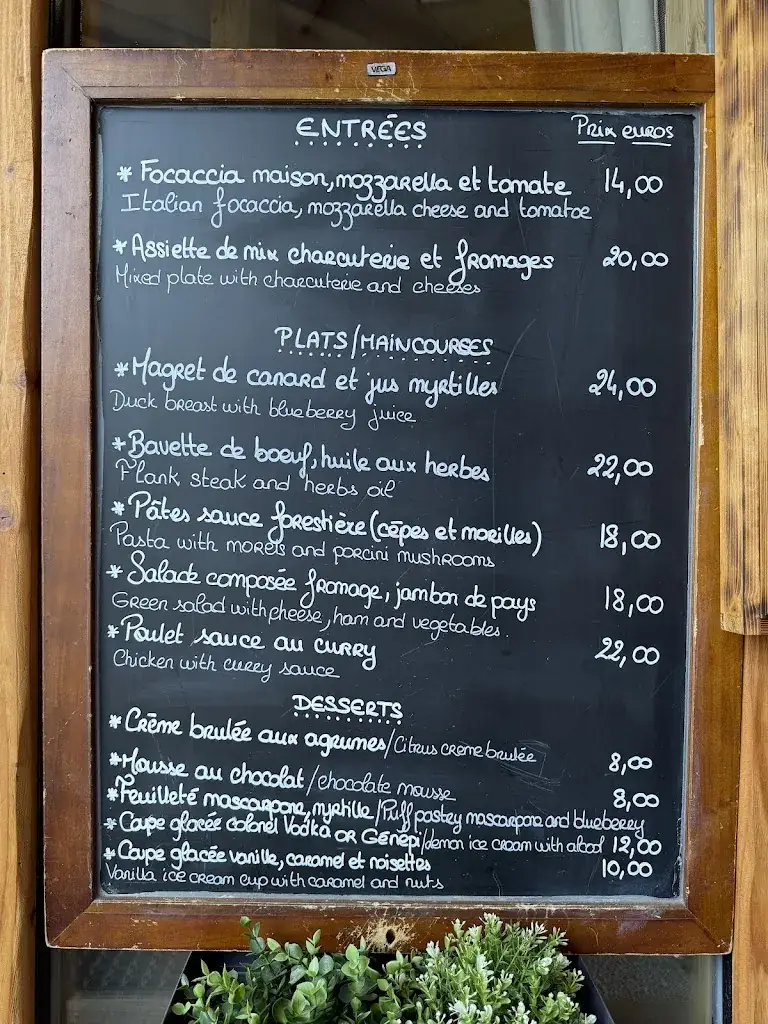 VEGA
ENTRÉES Prix euros
* Focaccia maison, mozzarella et tomate 14,00
Italian focaccia, mozzarella cheese and tomatoe
* Assiette de mix charcuterie et fromages 20,00
Mixed plate with charcuterie and cheeses
PLATS/MAINCOURSES
* Magret de canard et jus myrtilles 24,00
Duck breast with blueberry juice
* Bavette de boeuf, huile aux herbes 22,00
Flank steak and herbs oil
* Pâtes sauce forestière (cêpes et morilles) 18,00
Pasta with morels and porcini mushrooms
* Salade composée fromage, jambon de pays 18,00
Green salad with cheese, ham and vegetables.
* Poulet sauce au curry 22,00
Chicken with curry sauce
DESSERTS
* Crème brulée aux agrumes/Citrus creme brulée 8,00
* Mousse au chocolat/chocolate mousse 8,00
* Feuilleté mascarpone, myrtille/Puff pastry mascarpone and blueberry
* Coupe glacée colonel Vodka OR Génépi/lemon ice cream with alcool 12,00
* Coupe glacée vanille, caramel et noisettes 10,00
Vanilla ice cream cup with caramel and nuts